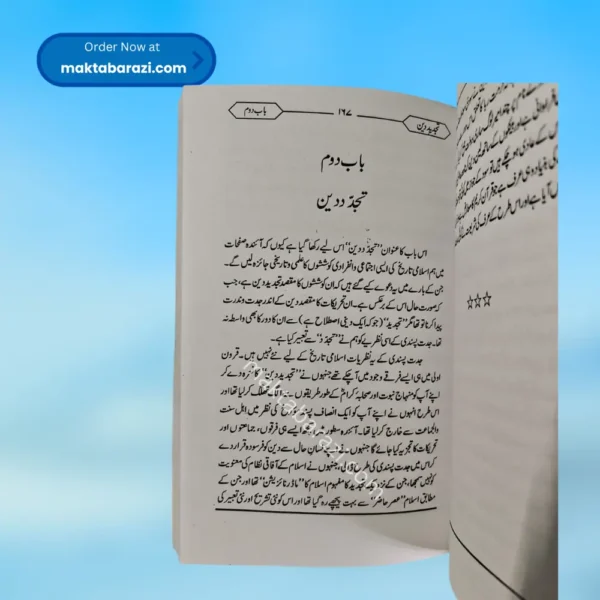 Order Now at
maktabarazi.com
تجدید دین
۱۶۷
باب دوم
باب دوم
تجدّد دین
اس باب کا عنوان ”تجدّد دین“ اس لیے رکھا گیا ہے کیوں کہ آئندہ صفحات
میں ہم اسلامی تاریخ کی ایسی اجتماعی و انفرادی کوششوں کا علمی و تاریخی جائزہ لیں گے۔
جن کے بارے میں یہ دعوے کیے گئے ہیں کہ ان کوششوں کا مقصد تجدید دین ہے، جب
کہ صورت حال اس کے برعکس ہے۔ ان تحریکات کا مقصد دین کے اندر جدت و ندرت
پیدا کرنا تو تھا مگر ”تجدید“ (جو کہ ایک دینی اصطلاح ہے) سے ان کا دور کا بھی واسطہ نہ
تھا۔ جدت پسندی کے اسی نظریے کو ہم نے ”تجدّد“ سے تعبیر کیا ہے۔
جدت پسندی کے یہ نظریات اسلامی تاریخ کے لیے نئے نہیں ہیں۔ قرون
اولیٰ میں ہی ایسے فرقے وجود میں آ چکے تھے جنہوں نے ”تجدید دین“ کا نعرہ دے کر
اپنے آپ کو منہاج نبوت اور صحابہ کرامؓ کے طور طریقوں سے الگ تھلگ کر لیا تھا اور
اس طرح انہوں نے اپنے آپ کو ایک انصاف پسند مؤرخ کی نظر میں اہل سنت
والجماعت سے خارج کر لیا تھا۔ آئندہ سطور میں ایسے ہی فرقوں، جماعتوں اور
تحریکات کا تجزیہ کیا جائے گا جنہوں نے لسان حال سے دین کو فرسودہ قرار دے
کر اس میں جدت پسندی کی طرح ڈالی، جنہوں نے اسلام کے آفاقی نظام کی معنویت
کو نہیں سمجھا، جن کے نزدیک تجدید کا مفہوم اسلام کا ”ماڈرنائزیشن“ تھا اور جن کے
مطابق اسلام ”عصر حاضر“ سے بہت پیچھے رہ گیا تھا اور اس کو نئی تشریح اور نئی تعبیر کی
maktabarazi.com
☆☆☆